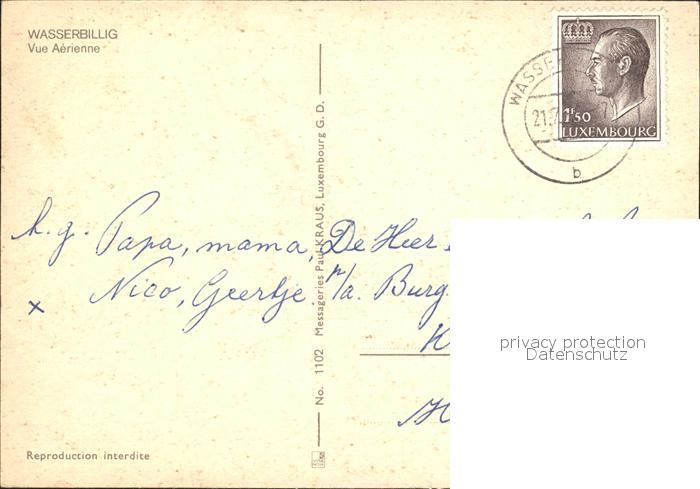 WASSERBILLIG
Vue Aérienne
WASSE
21.7
b
1F50
LUXEMBOURG
No. 1102 Messageries Paul KRAUS, Luxembourg G. D.
h. g. Papa, mama,
Nico, Geertje.
x
De Heer
p/a. Burg.
K
H
privacy protection
Datenschutz
Reproduction interdite